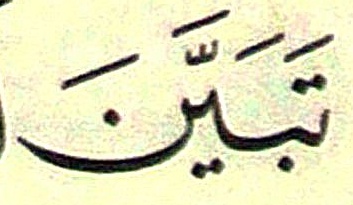 تَبَيَّنَ